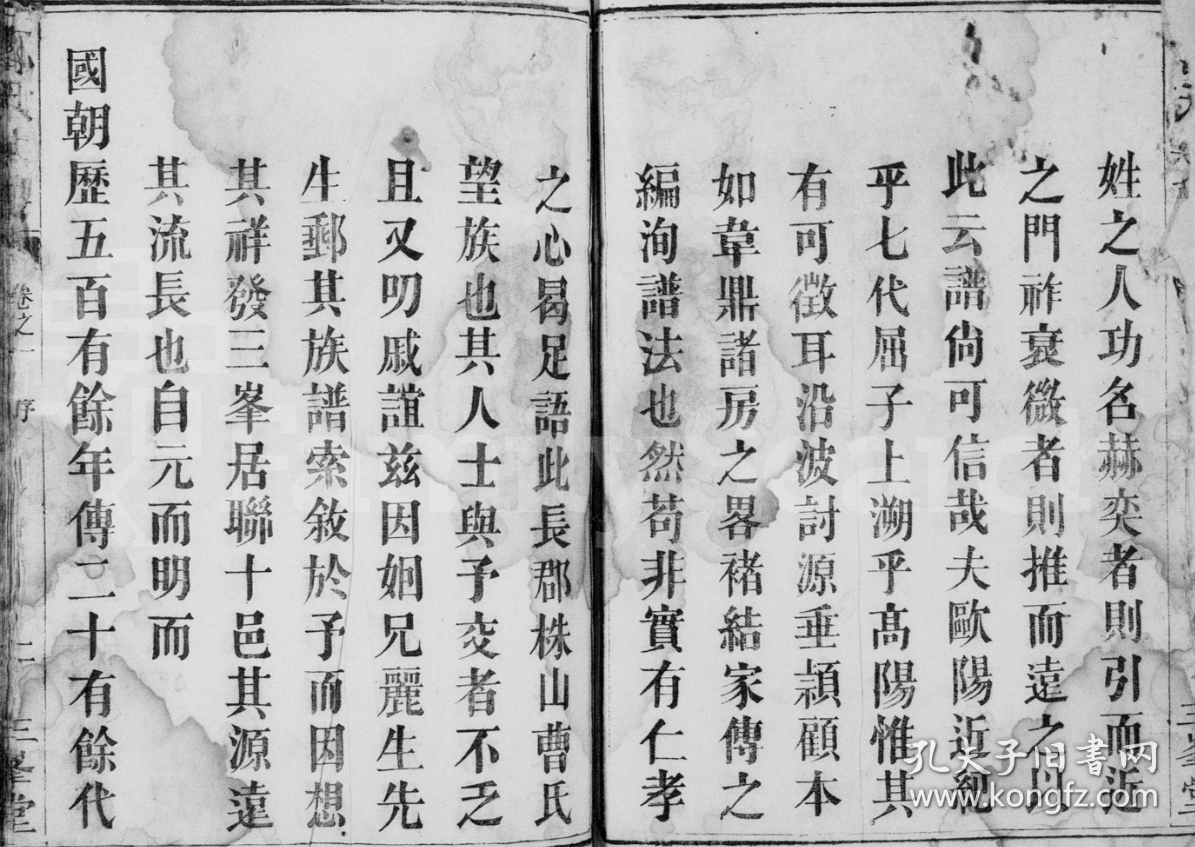 姓之人功名赫奕者則引而近
之門祚衰微者則推而遠之以
此云譜尙可信哉夫歐陽近紀
乎七代屈子上溯乎髙陽惟其
有可徵耳沿波討源垂頴顧本
如韋鼎諸房之畧褚結家傳之
編洵譜法也然苟非實有仁孝
之心曷足語此長郡株山曹氏
望族也其人士與予交者不乏
且又叨戚誼兹因姻兄麗生先
生郵其族譜索敘於予而因想
其祥發三峯居聯十邑其源遠
其流長也自元而明而
國朝歷五百有餘年傳二十有餘代
卷之一 序
二
三峯堂
孔夫子旧书网
www.kongfz.com
FamilySearch